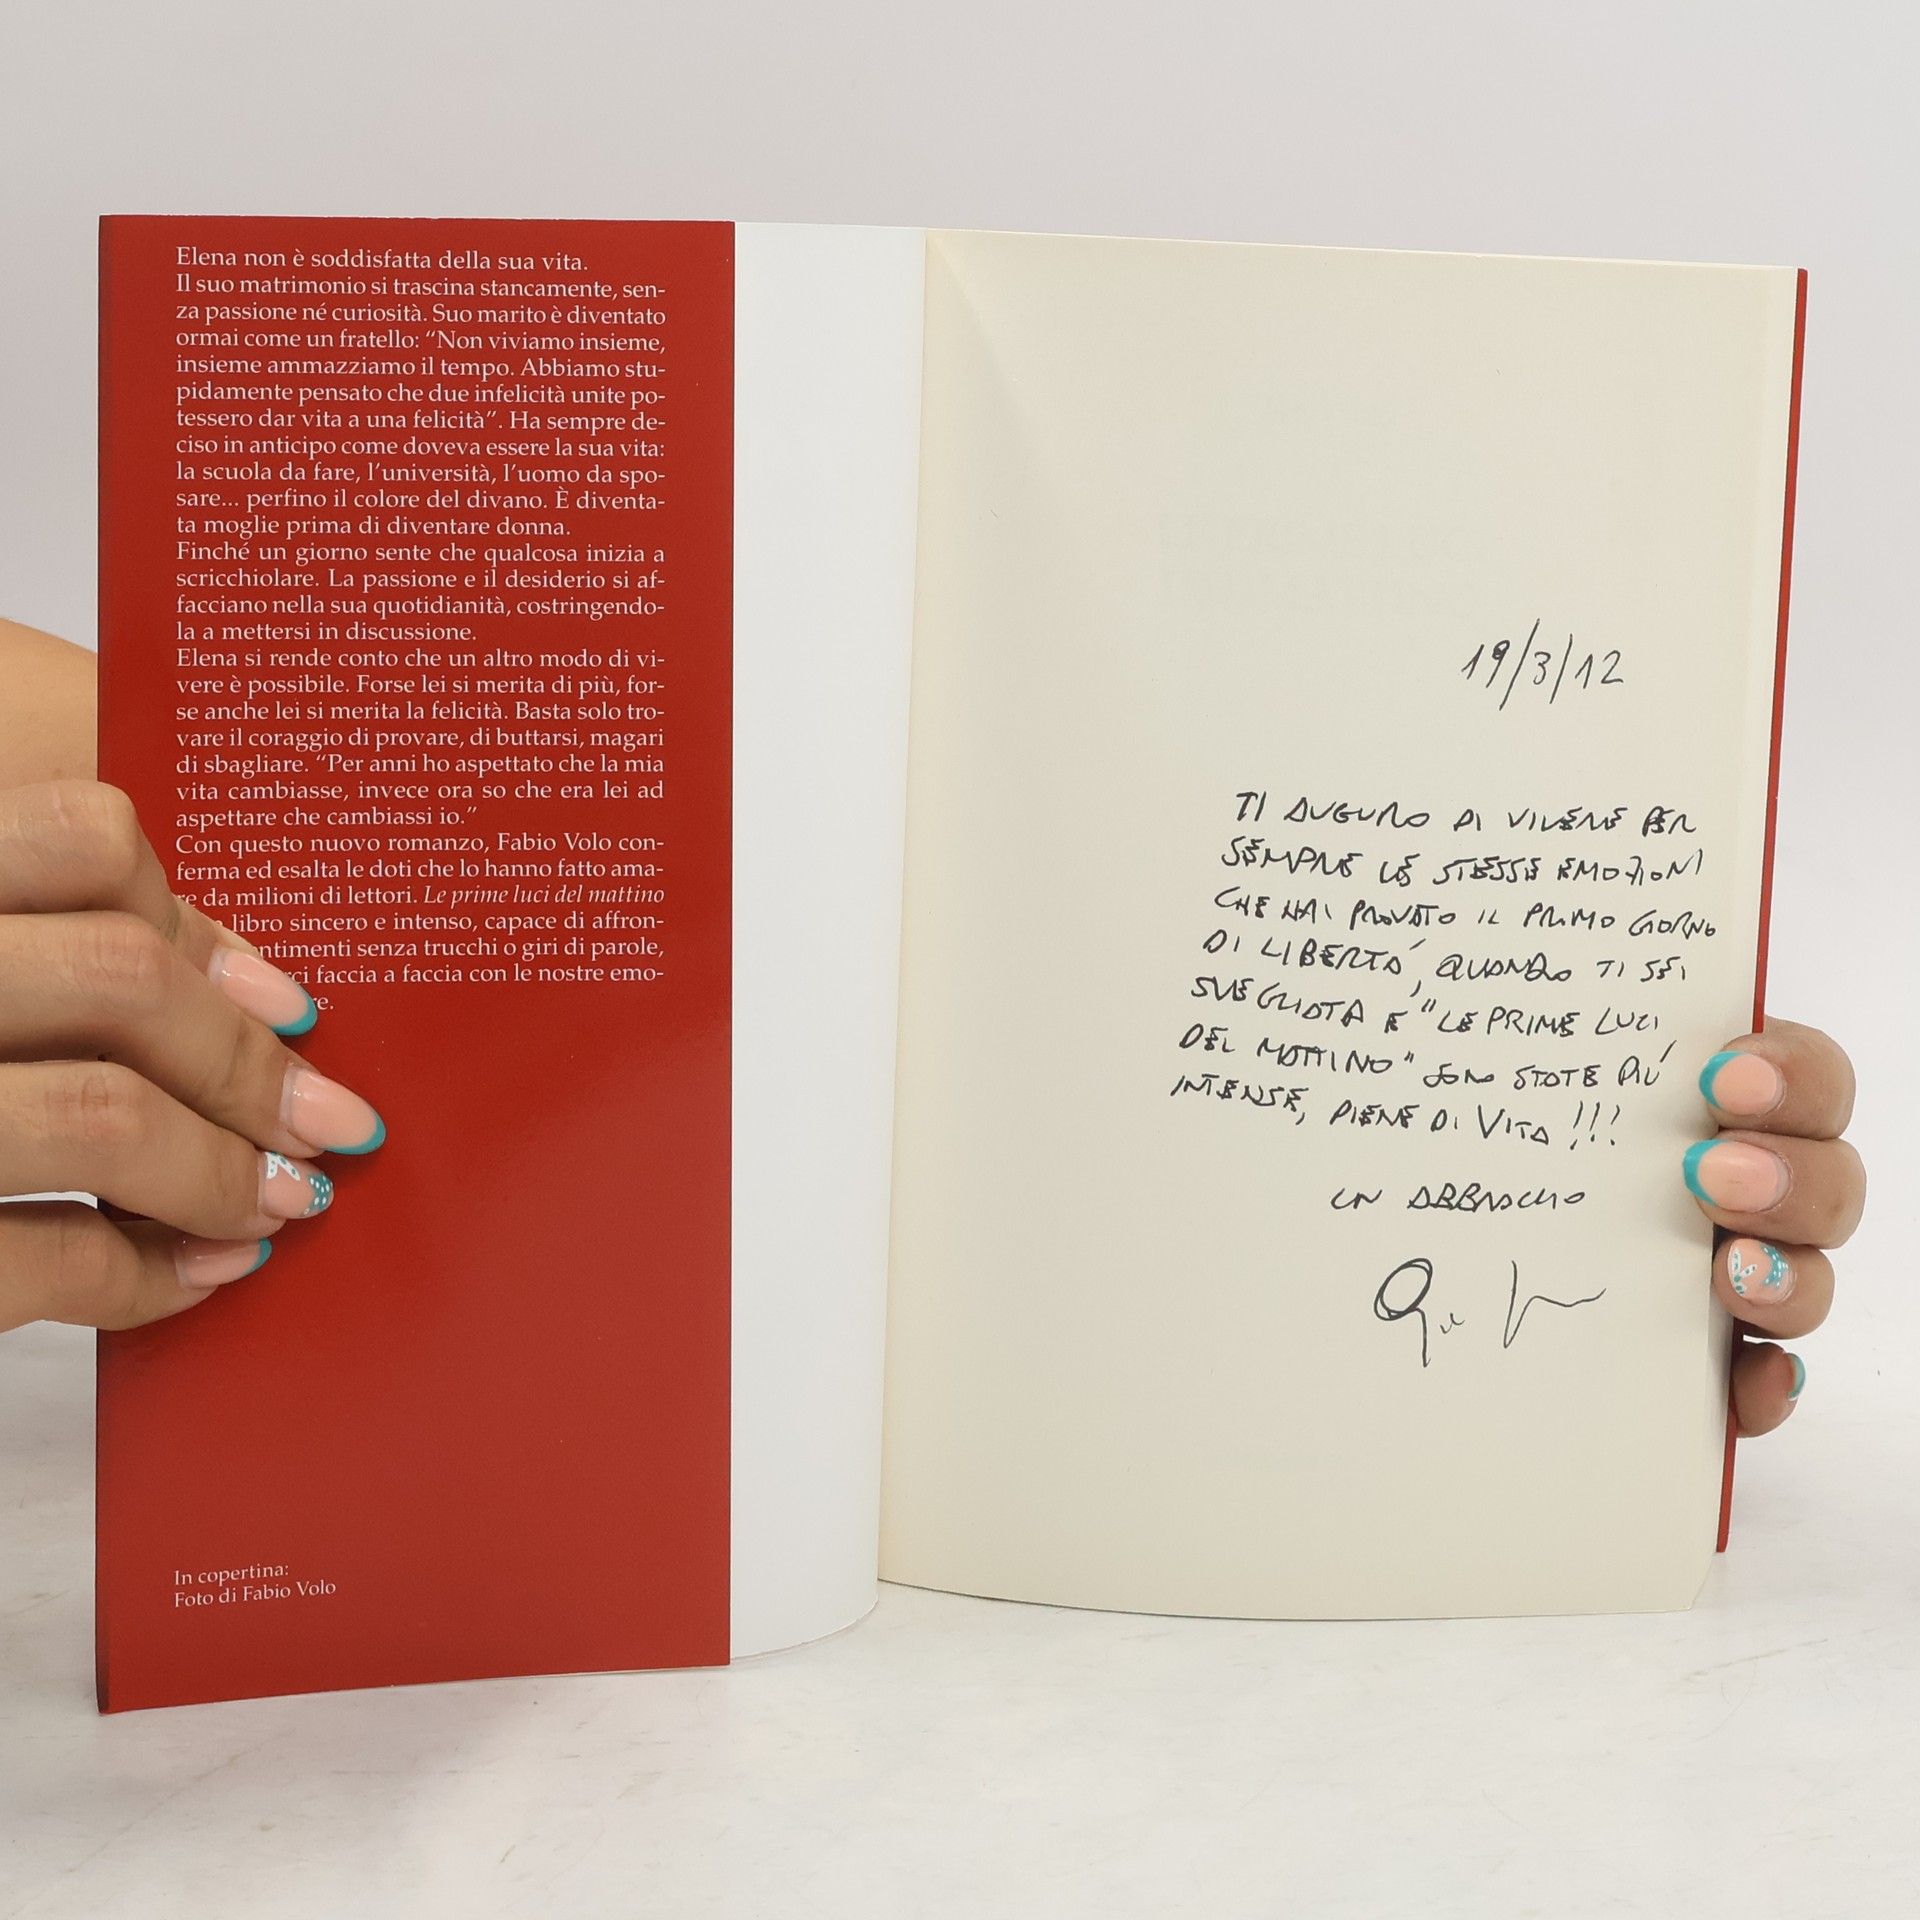 Elena non è soddisfatta della sua vita.
Il suo matrimonio si trascina stancamente, sen-
za passione né curiosità. Suo marito è diventato
ormai come un fratello: “Non viviamo insieme,
insieme ammazziamo il tempo. Abbiamo stu-
pidamente pensato che due infelicità unite po-
tessero dar vita a una felicità”. Ha sempre de-
ciso in anticipo come doveva essere la sua vita:
la scuola da fare, l’università, l’uomo da spo-
sare... perfino il colore del divano. È diventa-
ta moglie prima di diventare donna.
Finché un giorno sente che qualcosa inizia a
scricchiolare. La passione e il desiderio si af-
facciano nella sua quotidianità, costringendo-
la a mettersi in discussione.
Elena si rende conto che un altro modo di vi-
vere è possibile. Forse lei si merita di più, for-
se anche lei si merita la felicità. Basta solo tro-
vare il coraggio di provare, di buttarsi, magari
di sbagliare. “Per anni ho aspettato che la mia
vita cambiasse, invece ora so che era lei ad
aspettare che cambiassi io.”
Con questo nuovo romanzo, Fabio Volo con-
ferma ed esalta le doti che lo hanno fatto ama-
re da milioni di lettori. Le prime luci del mattino
libro sincero e intenso, capace di affron-
ntimenti senza trucchi o giri di parole,
rci faccia a faccia con le nostre emo-
re.
In copertina:
Foto di Fabio Volo
19/3/12
TI AUGURO DI VIVERE PER
SEMPRE LE STESSE EMOZIONI
CHE HAI PROVATO IL PRIMO GIORNO
DI LIBERTA', QUANDO TI SEI
SVEGLIATA E "LE PRIME LUCI
DEL MATTINO" SONO STATE PIU'
INTENSE, PIENE DI VITA !!!
UN ABBRACCIO